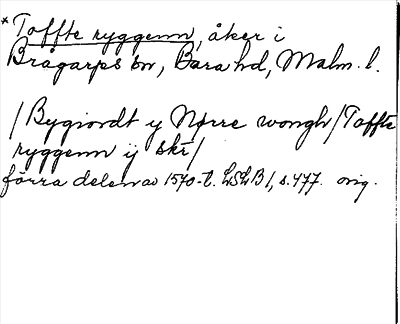 *Toffte ryggenn, åker i
Brågarps sn, Bara hd, Malm. l.
/Bygiordt y Nørre wongh/Toffte
ryggenn ij skr/
förra delen av 1570-t. LSLB1, s. 477. orig.